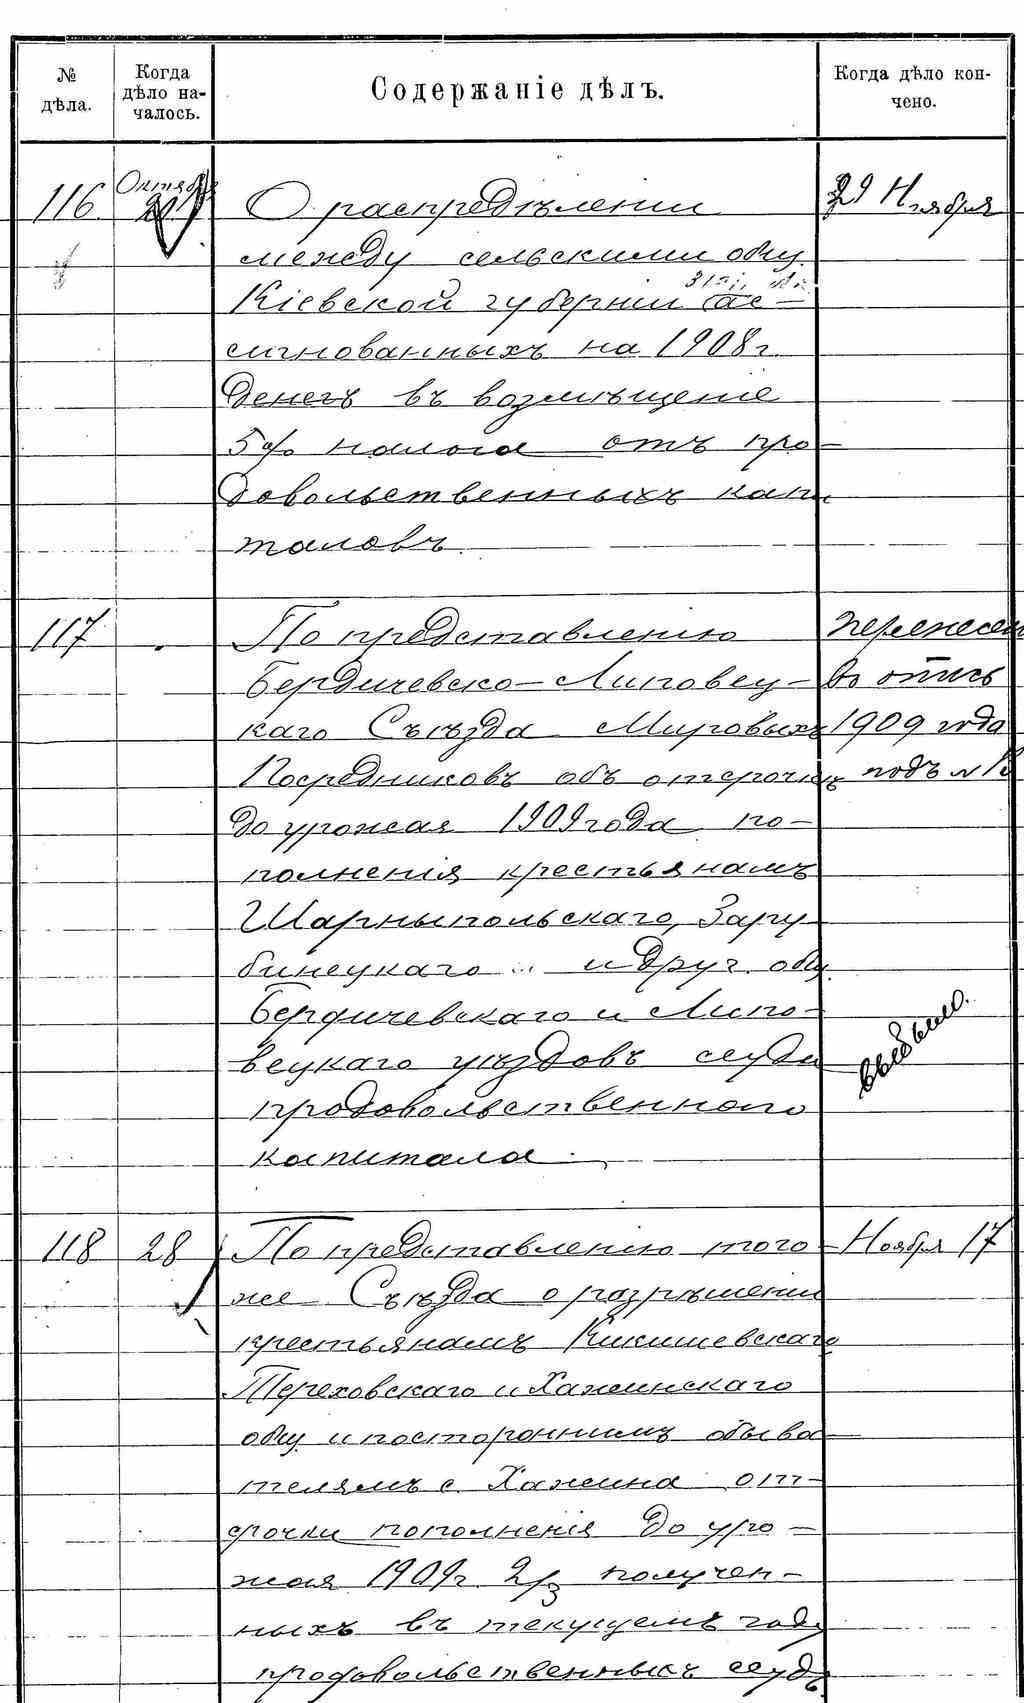 № дѣла.
Когда дѣло на-чалось.
Содержаніе дѣлъ.
Когда дѣло кон-чено.
116. Октября О распредѣленіи 29 Ноября
между сельскими общ.
Кіевской губерніи ас-
сигнованныхъ на 1908 г.
денегъ въ возмѣщеніе
5% налога отъ про-
довольственныхъ капи
таловъ.
117 По представленію перенесен
Бердичевско-Липовец- въ опись
каго Съѣзда Мировыхъ 1909 года
Посредниковъ объ отсрочкѣ подъ № 13
до урожая 1909 года по-
полненія крестьянамъ
Шарнипольскаго, Зару-
бинецкаго и друг. общ.
Бердичевскаго и Липо-
вецкаго уѣздовъ ссуды
продовольственнаго
капитала.
выбыло.
118 28 По представленію того- Ноября 17
же Съѣзда о разрѣшеніи
крестьянамъ Кикишевскаго
Тереховскаго и Хажинскаго
общ. и постороннимъ обыва-
телямъ с. Хажина от-
срочки пополненія до уро-
жая 1909 г. 2/3 получен-
ныхъ въ текущемъ году
продовольственныхъ ссудъ